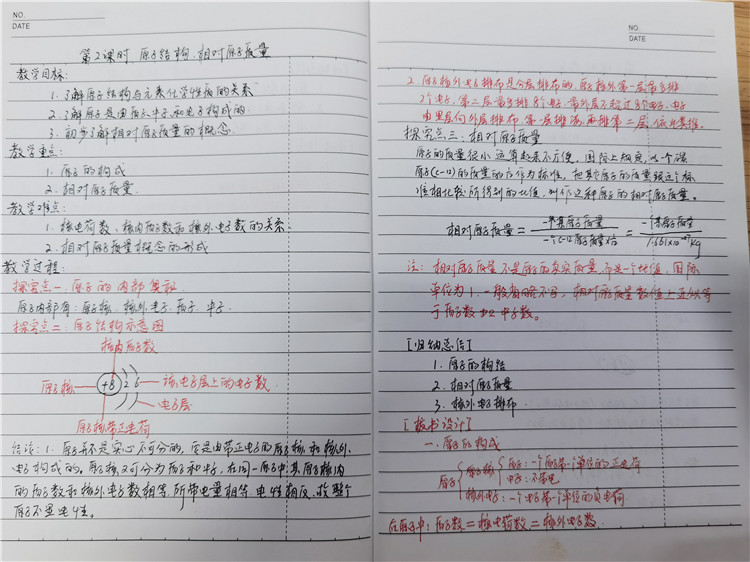 NO.
DATE
第2课时 原子结构、相对原子质量
教学目标:
1. 了解原子结构与元素化学性质的关系
2. 了解原子是由质子、中子和电子构成的
3. 初步了解相对原子质量的概念
教学重点:
1. 原子的构成
2. 相对原子质量
教学难点:
1. 核电荷数、核内质子数和核外电子数的关系
2. 相对原子质量概念的形成
教学过程:
探究点一. 原子的内部
原子内部有: 原子核、核外电子、质子、中子
探究点二: 原子结构示意图
核内质子数
原子核
+8 2 6
该电子层上的电子数
电子层
原子核带正电荷
结论: 1. 原子并不是实心不可分的, 它是由带正电的原子核和核外
电子构成的, 原子核又可分为质子和中子. 在同一原子中, 其原子核内
的质子数和核外电子数相等, 所带电量相等, 电性相反, 故整个
原子不显电性。
NO.
DATE
2. 原子核外电子排布是分层排布的, 原子核外第一层最多排
2个电子, 第二层最多排8个电子, 最外层不超过8个电子, 电子
由里层向外层排布, 第一层排满, 再排第二层, 依此类推。
探究点三: 相对原子质量
原子的质量很小, 运算起来不方便, 国际上规定, 以一个碳
原子(C-12)的质量的1/12作为标准, 把其它原子的质量跟这个标
准相比较所得到的比值, 叫作这种原子的相对原子质量。
相对原子质量 = 一个某原子质量 / 一个C-12原子质量×1/12 = 一个某原子质量 / 1.661×10⁻²⁷kg
注: 相对原子质量不是原子的真实质量, 而是一个比值, 国际
单位为1, 一般省略不写, 相对原子质量数值上近似等
于质子数加中子数。
[归纳总结]
1. 原子的构结
2. 相对原子质量
3. 核外电子排布
[板书设计]
一. 原子的构成
原子
原子核
质子: 一个质子带一个单位的正电荷
中子: 不带电
核外电子: 一个电子带一个单位的负电荷
在原子中: 质子数 = 核电荷数 = 核外电子数